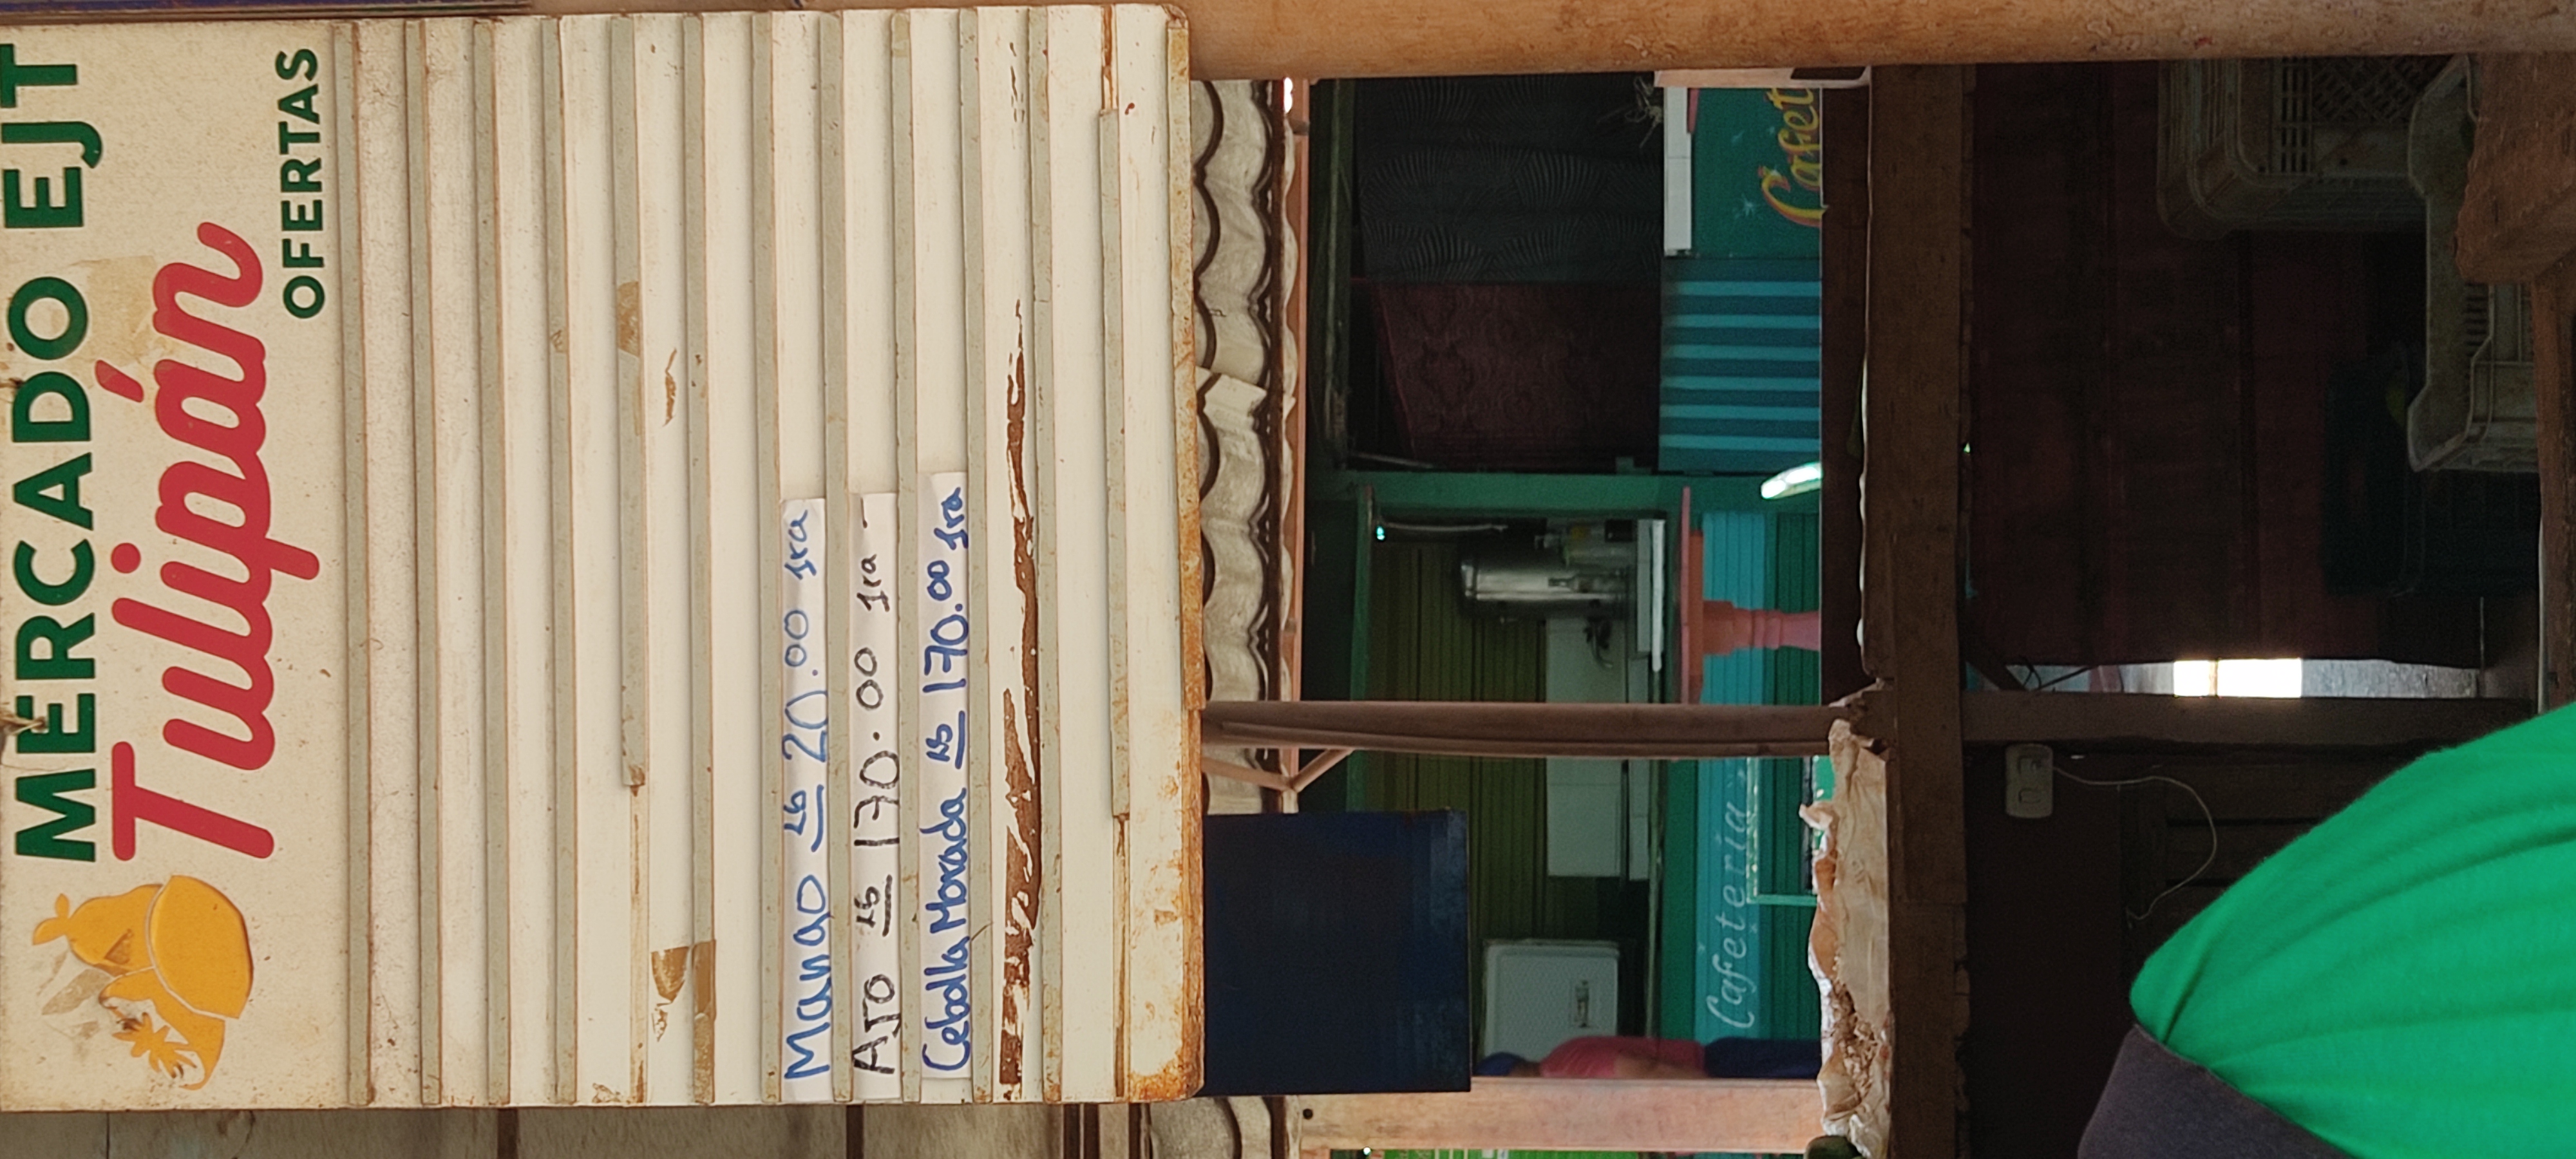 MERCADO EJT
Tulipán
OFERTAS
Mango Lb 20.00 1ra
AJO Lb 170.00 1ra
Cebolla Morada Lb 170.00 1ra
Cafetería
Cafet